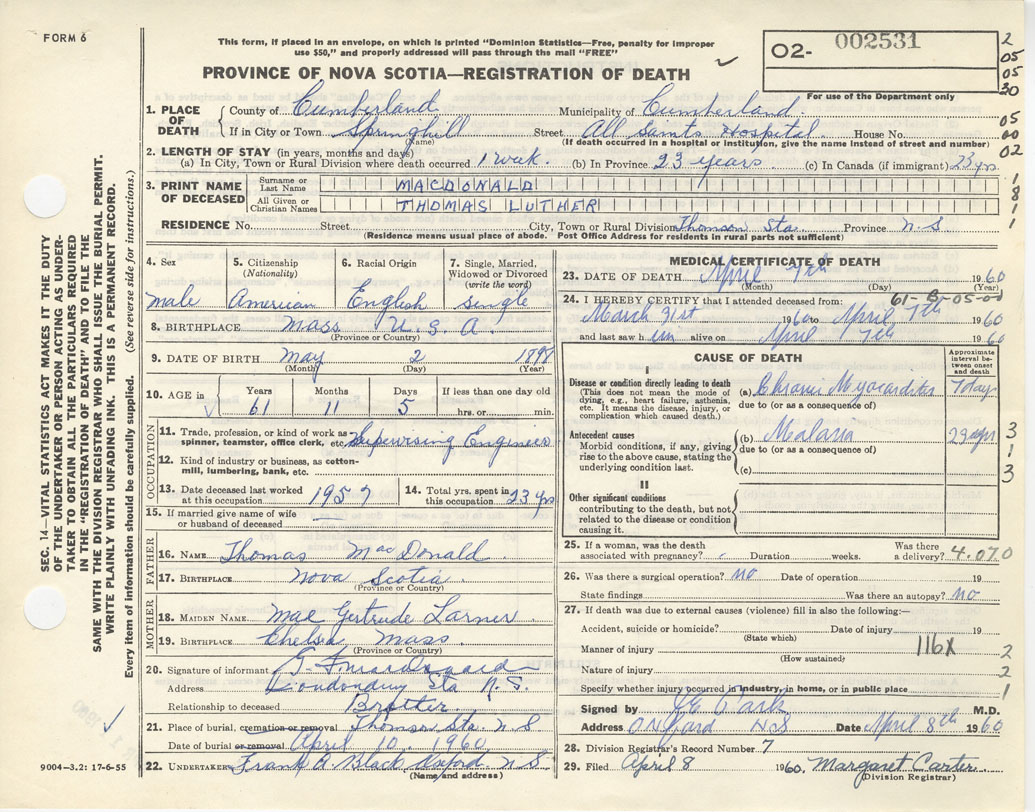 FORM 6
This form, if placed in an envelope, on which is printed "Dominion Statistics—Free, penalty for improper
use $50," and properly addressed will pass through the mail "FREE"
PROVINCE OF NOVA SCOTIA—REGISTRATION OF DEATH
O2- 002531
For use of the Department only
2
05
05
30
05
00
02
1
8
1
1
SEC. 14—VITAL STATISTICS ACT MAKES IT THE DUTY
OF THE UNDERTAKER OR PERSON ACTING AS UNDER-
TAKER TO OBTAIN ALL THE PARTICULARS REQUIRED
IN THE "REGISTRATION OF DEATH" AND TO FILE THE
SAME WITH THE DIVISION REGISTRAR WHO SHALL ISSUE THE BURIAL PERMIT.
WRITE PLAINLY WITH UNFADING INK. THIS IS A PERMANENT RECORD.
Every item of information should be carefully supplied. (See reverse side for instructions.)
1. PLACE OF DEATH County of Cumberland Municipality of Cumberland
If in City or Town Springhill Street All Saints Hospital House No.
(Name) (If death occurred in a hospital or institution, give the name instead of street and number)
2. LENGTH OF STAY (in years, months and days)
(a) In City, Town or Rural Division where death occurred 1 week. (b) In Province 23 years (c) In Canada (if immigrant) 23 yrs
3. PRINT NAME OF DECEASED Surname or Last Name MACDONALD
All Given or Christian Names THOMAS LUTHER
RESIDENCE No. Street City, Town or Rural Division Thomson Sta. Province N.S
(Residence means usual place of abode. Post Office Address for residents in rural parts not sufficient)
4. Sex male
5. Citizenship (Nationality) American
6. Racial Origin English
7. Single, Married, Widowed or Divorced (write the word) single
8. BIRTHPLACE Mass U.S.A.
(Province or Country)
9. DATE OF BIRTH May 2 1898
(Month) (Day) (Year)
10. AGE in Years 61 Months 11 Days 5 If less than one day old hrs. or min.
OCCUPATION
11. Trade, profession, or kind of work as spinner, teamster, office clerk, etc. Supervising Engineer
12. Kind of industry or business, as cotton-mill, lumbering, bank, etc.
13. Date deceased last worked at this occupation 1957
14. Total yrs. spent in this occupation 23 yrs
15. If married give name of wife or husband of deceased —
FATHER
16. NAME Thomas MacDonald
17. BIRTHPLACE Nova Scotia
(Province or Country)
MOTHER
18. MAIDEN NAME Mae Gertrude Larner
19. BIRTHPLACE Chelsea Mass
(Province or Country)
20. Signature of informant
Address Londonderry Sta N.S.
Relationship to deceased Brother.
21. Place of burial, cremation or removal Thomson Sta. N S
Date of burial or removal April 10, 1960
22. UNDERTAKER Frank A Black Oxford N S
(Name and address)
9004—3.2: 17-6-55
MEDICAL CERTIFICATE OF DEATH
23. DATE OF DEATH April 7th 1960
(Month) (Day) (Year)
61-B-05-00
24. I HEREBY CERTIFY that I attended deceased from:
March 31st 1960 to April 7th 1960
and last saw him alive on April 7th 1960
CAUSE OF DEATH
Approximate interval between onset and death
I
Disease or condition directly leading to death
(This does not mean the mode of dying, e.g., heart failure, asthenia, etc. It means the disease, injury, or complication which caused death.)
(a) Chronic Myocarditis 7 days
due to (or as a consequence of)
Antecedent causes
Morbid conditions, if any, giving rise to the above cause, stating the underlying condition last.
(b) Malaria 23 yrs
due to (or as a consequence of)
(c)
3
1
3
II
Other significant conditions
contributing to the death, but not related to the disease or condition causing it.
25. If a woman, was the death associated with pregnancy? Duration weeks. Was there a delivery? 4.070
26. Was there a surgical operation? no Date of operation 19
State findings Was there an autopsy? no
27. If death was due to external causes (violence) fill in also the following:—
Accident, suicide or homicide? Date of injury 19
(State which)
Manner of injury 116X 2
(How sustained)
Nature of injury 2
Specify whether injury occurred in industry, in home, or in public place 1
Signed by M.D.
Address Oxford N S Date April 8th 1960
28. Division Registrar's Record Number 7
29. Filed April 8 1960. Margaret Carter
(Division Registrar)